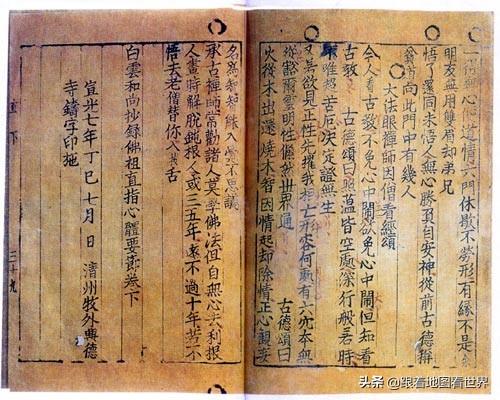 一得無心便道情六門休歇不勞形有緣不是
朋友無用雙眉却弟兄
悟了還同未悟人無心勝負自安神從前古德稱
貧道向此門中有幾人
大法眼禪師因僧看經頌
今人看古教不免心中鬧欲免心中鬧但知看
古教 古德頌曰照蘊皆空處深行般若時
唯超苦厄決定證無生
欲見正性先攘我相亡形容何處有六本無
縱豁爾雲明性儼然世界通 古德頌曰
火從木出還燒木智因情起却除情正心觀妄
名為智智能入不思議
承古禪師常勸諸人莫學佛法但自無心去利根
人晝時解脫鈍根人或三五年遠不過十年若不
悟去老僧替你入拔舌
白雲和尚抄錄佛祖直指心體要節卷下
宣光七年丁巳七月 日 清州牧外興德
寺鑄字印施
直下 三十九
头条 @跟着地图看世界